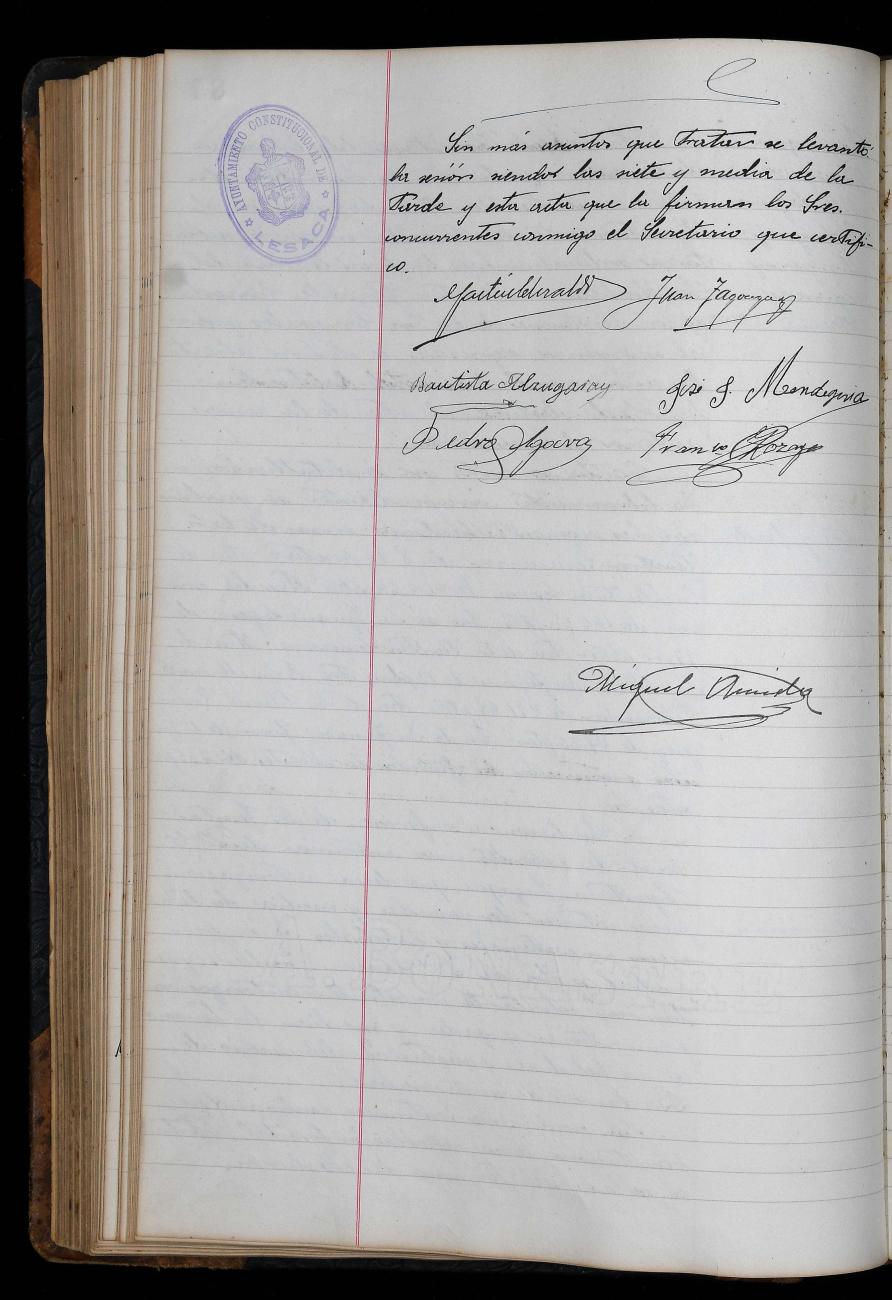 AYUNTAMIENTO CONSTITUCIONAL DE
LESACA
Sin más asuntos que tratar se levantó
la sesión siendo las siete y media de la
tarde y esta acta que la firman los Sres.
concurrentes conmigo el Secretario que certifi-
co.
Juan
Bautista Alzugaray
José J. Mendeguia
Pedro
Miguel